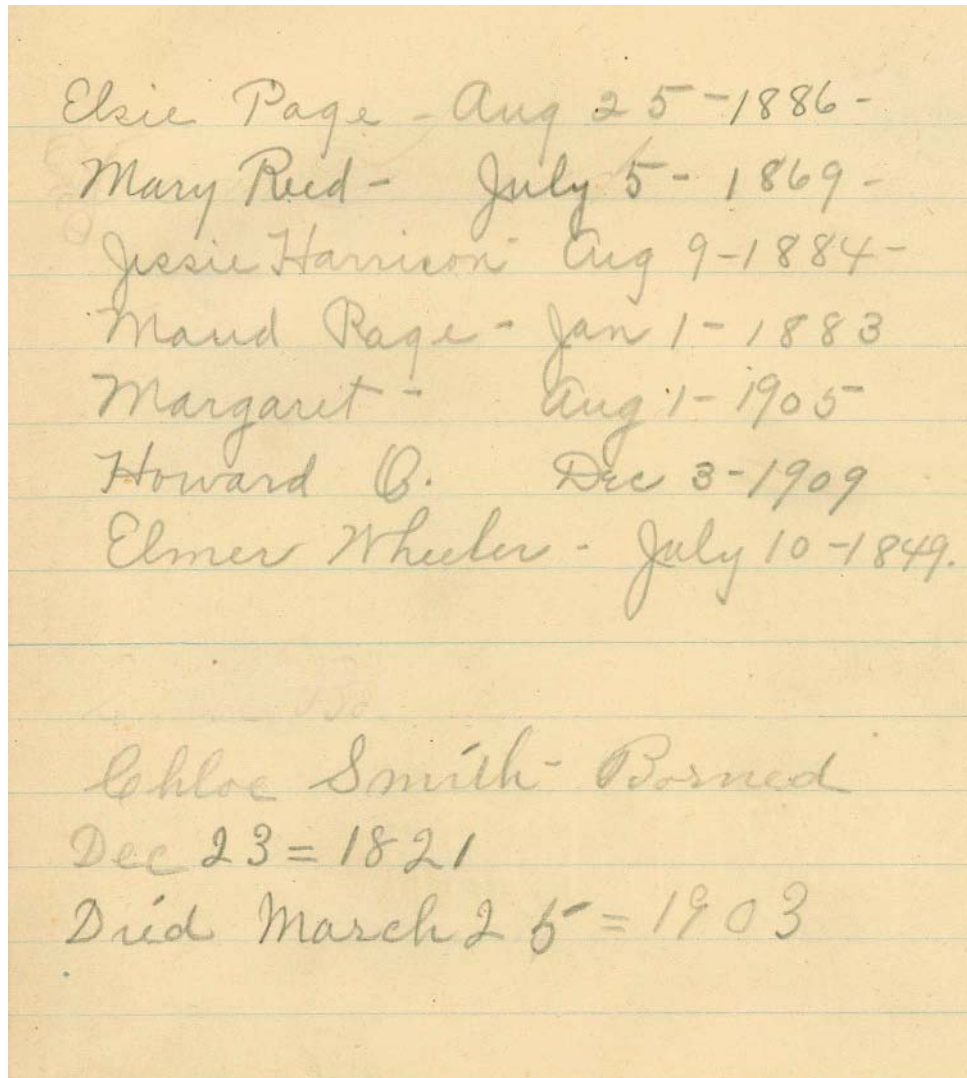 Elsie Page - Aug 25-1886-
Mary Reed - July 5- 1869-
Jessie Harrison Aug 9-1884-
Maud Page - Jan 1-1883
Margaret - Aug 1-1905
Howard O. Dec 3-1909
Elmer Wheeler - July 10-1849.
Chloe Smith - Borned
Dec 23=1821
Died March 25=1903